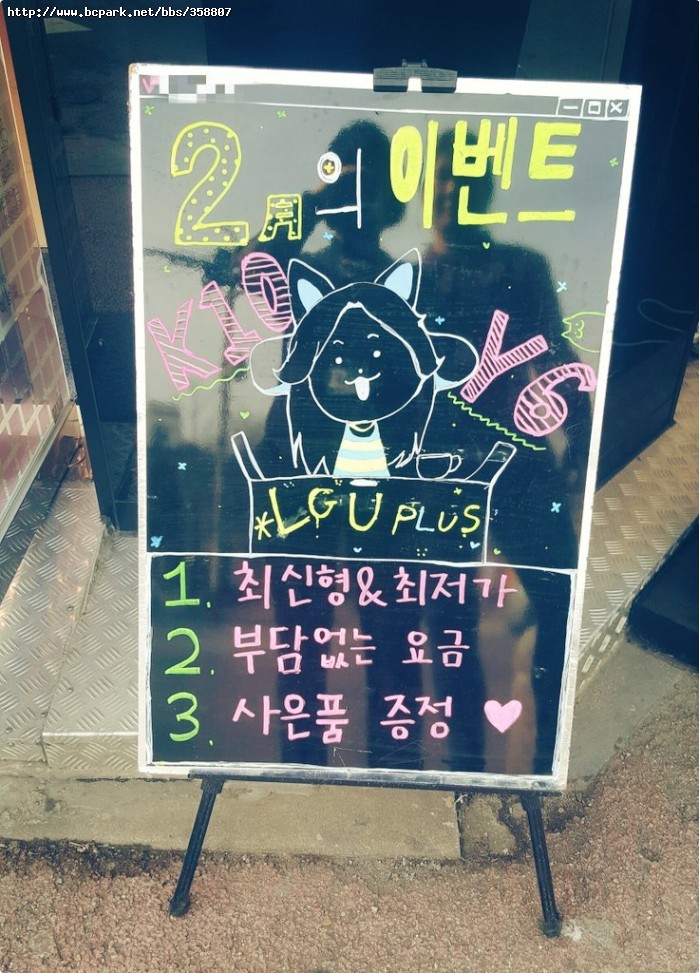 http://www.bcpark.net/bbs/358807
2月의 이벤트
K10
Y6
*LG U PLUS
1. 최신형&최저가
2. 부담없는 요금
3. 사은품 증정 ♥